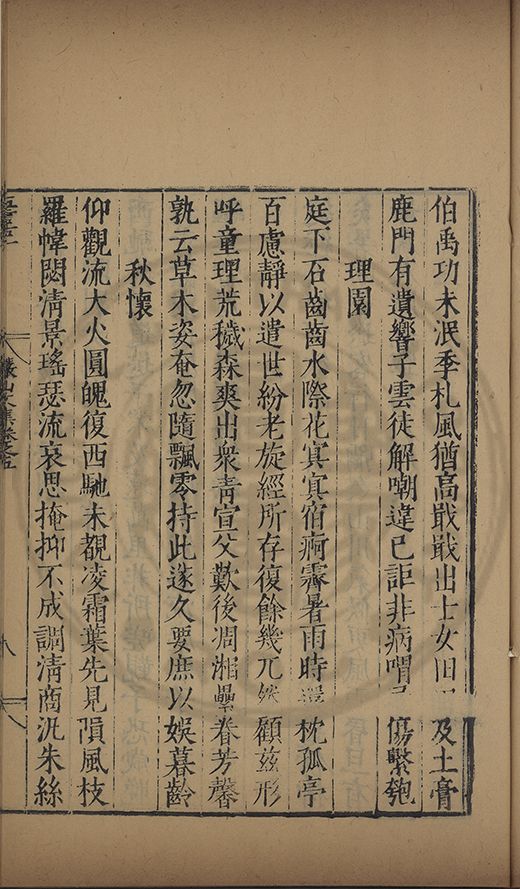 伯禹功未泯季札風猶高戢戢出士女旧及土膏
鹿門有遺響子雲徒解嘲違已詎非病喟傷繫匏
理園
庭下石齒齒水際花寘寘宿痾霽暑雨時還枕孤亭
百慮靜以遣世紛老旋經所存復餘幾兀然顧茲形
呼童理荒穢森爽出衆靑宣父歎後凋湘纍眷芳馨
孰云草木姿奄忽隨飄零持此遂久要庶以娛暮齡
秋懷
仰觀流大火圓魄復西馳未覩凌霜葉先見隕風枝
羅幃閟淸景瑤瑟流哀思掩抑不成調淸商汎朱絲